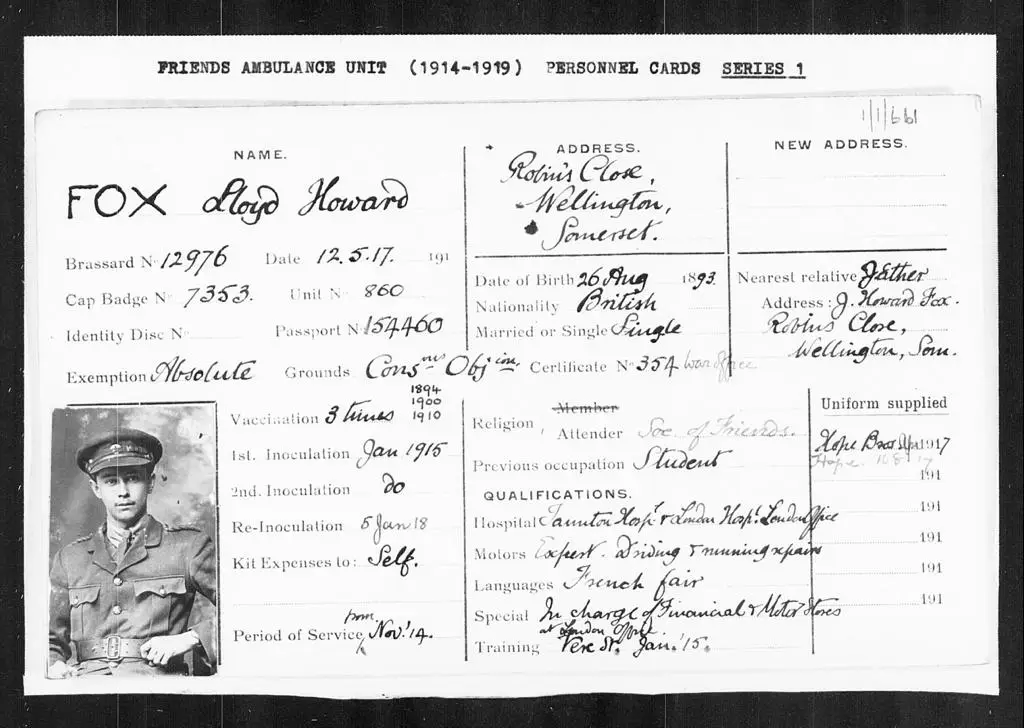 FRIENDS AMBULANCE UNIT (1914-1919) PERSONNEL CARDS SERIES 1
NAME.
FOX Lloyd Howard
Brassard No 12976 Date 12.5.17. 191
Cap Badge No 7353. Unit No 860
Identity Disc No Passport No 154460
ADDRESS.
Robin's Close,
Wellington,
Somerset.
NEW ADDRESS.
Date of Birth 26 Aug 1893.
Nationality British
Married or Single Single
Nearest relative Father
Address: J. Howard Fox.
Robins Close,
Wellington, Som.
Exemption Absolute Grounds Cons^ous Obj^ion Certificate No 354 War Office
Vaccination 3 times 1894
1900
1910
1st. Inoculation Jan 1915
2nd. Inoculation do
Re-Inoculation 5 Jan 18
Kit Expenses to: Self.
Period of Service from Nov. '14.
Religion, Member
Attender Soc. of Friends.
Previous occupation Student
QUALIFICATIONS.
Hospital Taunton Hosp! & London Hosp!. London Office
Motors Expert. Driving & running repairs
Languages French fair
Special In charge of Financial & Motor Stores
at London Office.
Training Vere St. Jan. '15.
Uniform supplied
Hope Bros Apr 1917
Hope
191
191
191
191
191